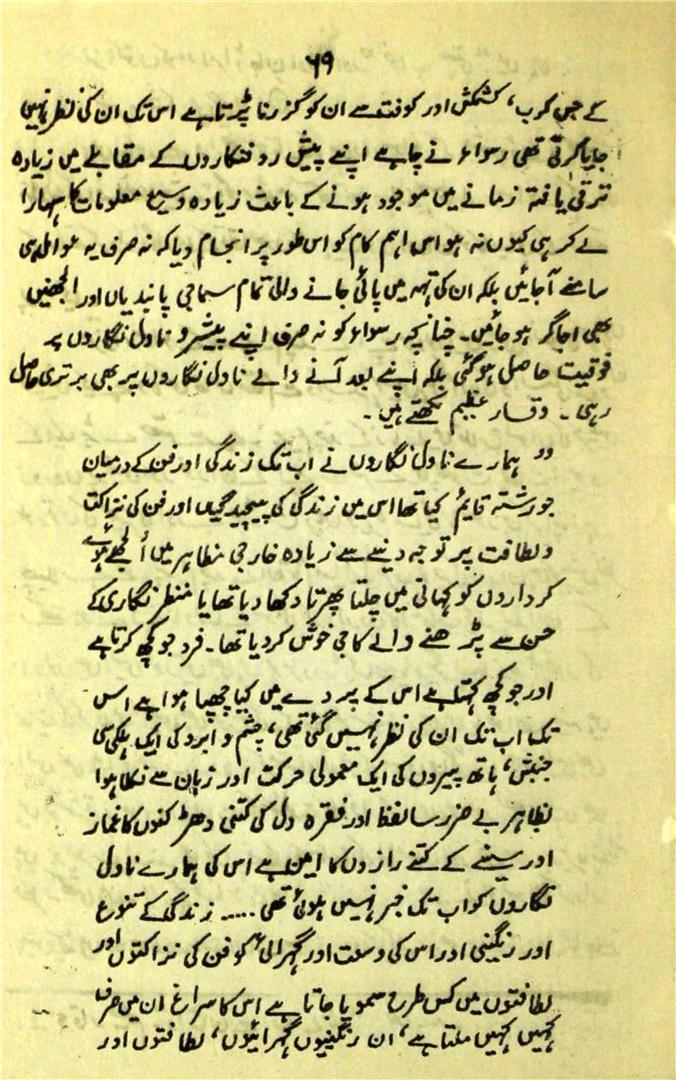 ۶۹
کے جس کرب، کشمکش اور کوفت سے ان کو گزرنا پڑتا ہے اس تک ان کی نظر نہیں
جایا کرتی تھی رسواء نے چاہے اپنے پیش رو فنکاروں کے مقابلے میں زیادہ
ترقی یافتہ زمانے میں موجود ہونے کے باعث زیادہ وسیع معلومات کا سہارا
لے کر ہی کیوں نہ ہو اس اہم کام کو اس طور پر انجام دیا کہ نہ صرف یہ عوامل ہی
سامنے آجائیں بلکہ ان کی تہہ میں پائی جانے والی تمام سماجی پابندیاں اور الجھنیں
بھی اجاگر ہو جائیں۔ چنانچہ رسواء کو نہ صرف اپنے پیشرو ناول نگاروں پر
فوقیت حاصل ہو گئی بلکہ اپنے بعد آنے والے ناول نگاروں پر بھی برتری حاصل
رہی۔ وقار عظیم لکھتے ہیں۔
" ہمارے ناول نگاروں نے اب تک زندگی اور فن کے درمیان
جو رشتہ قایم کیا تھا اس میں زندگی کی پیچیدگیاں اور فن کی نزاکت
ولطافت پر توجہ دینے سے زیادہ خارجی مظاہر میں اُلجھے ہوئے
کرداروں کو کہانی میں چلتا پھرتا دکھا دیا تھا یا منظر نگاری کے
حسن سے پڑھنے والے کا جی خوش کر دیا تھا۔ فرد جو کچھ کرتا ہے
اور جو کچھ کہتا ہے اس کے پردے میں کیا چھپا ہوا ہے اس
تک اب تک ان کی نظر نہیں گئی تھی، چشم و ابرو کی ایک ہلکی سی
جنبش، ہاتھ پیروں کی ایک معمولی حرکت اور زبان سے نکلا ہوا
بظاہر بے ضرر سا لفظ اور فقرہ دل کی کتنی دھڑکنوں کا غماز
اور سینے کے کتنے رازوں کا امین ہے اس کی ہمارے ناول
نگاروں کو اب تک خبر نہیں ہوئی تھی ..... زندگی کے تنوع
اور رنگینی اور اس کی وسعت اور گہرائی کو فن کی نزاکتوں اور
لطافتوں میں کس طرح سمویا جاتا ہے اس کا سراغ ان میں صرف
کہیں کہیں ملتا ہے، ان رنگینیوں گہرائیوں، لطافتوں اور